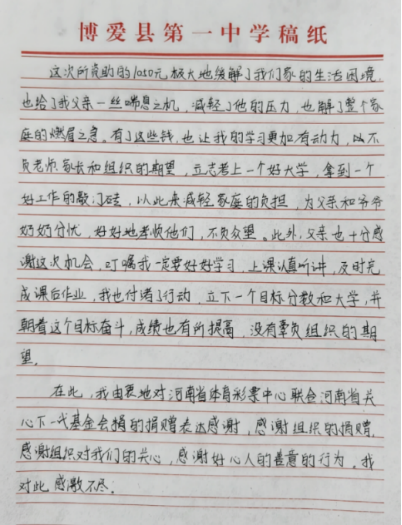 博爱县第一中学稿纸
这次所资助的1050元极大地缓解了我们家的生活困境,
也给了我父亲一丝喘息之机,减轻了他的压力,也解了整个家
庭的燃眉之急。有了这些钱,也让我的学习更加有动力,以不
负老师家长和组织的期望,立志考上一个好大学,拿到一个
好工作的敲门砖,以此来减轻家庭的负担,为父亲和爷爷
奶奶分忧,好好地孝顺他们,不负众望。此外,父亲也十分感
谢这次机会,叮嘱我一定要好好学习,上课认真听讲,及时完
成课后作业,我也付诸了行动,立下一个目标分数和大学,并
朝着这个目标奋斗,成绩也有所提高,没有辜负组织的期
望。
在此,我由衷地对河南省体育彩票中心联合河南省关
心下一代基金会捐的捐赠表达感谢,感谢组织的捐赠,
感谢组织对我们的关心,感谢好心人的善意的行为。我
对此感激不尽。